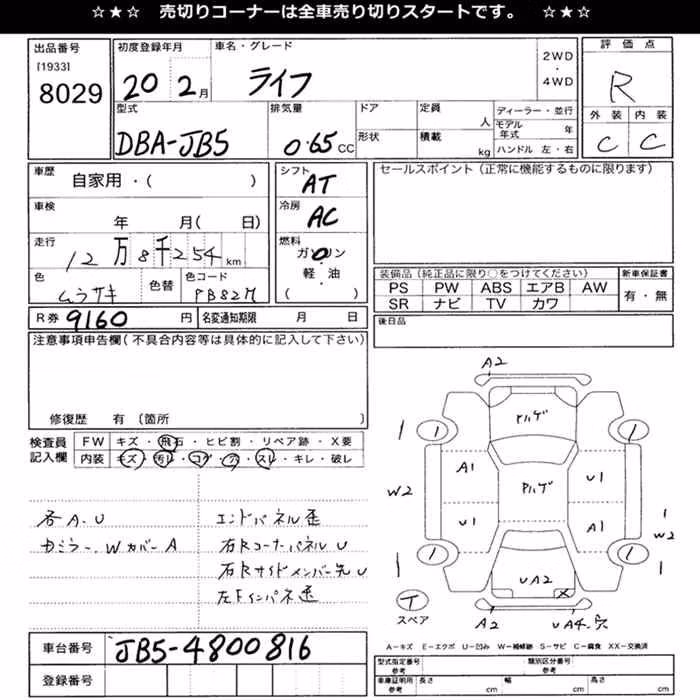 ☆★☆ 売切りコーナーは全車売り切りスタートです。 ☆★☆
出品番号
[1933]
8029
初度登録年月
20 2月
車名・グレード
ライフ
2WD
・
4WD
評価点
R
外装 内装
C C
型式
DBA-JB5
排気量
0.65CC
ドア
形状
定員
人
積載
kg
ディーラー・並行
モデル年式 年
ハンドル 左・右
車歴
自家用・( )
車検
年 月( 日)
走行
12万8千254km
色
ムラサキ
色替
色コード
PB82M
シフト
AT
冷房
AC
燃料
ガソリン
・
軽油
( )
セールスポイント(正常に機能するものに限ります)
装備品(純正品に限り○をつけてください)
PS PW ABS エアB AW
SR ナビ TV カワ
新車保証書
有・無
R券 9160円
名変通知期限 月 日
後日品
注意事項申告欄(不具合内容等は具体的に記入して下さい)
修復歴 有(箇所 )
検査員記入欄
FW キズ・飛石・ヒビ割・リペア跡・X要
内装 キズ・汚レ・コゲ・穴・スレ・キレ・破レ
各A.U
カミラー、WカバーA
エンドパネル歪
右Rコーナーパネル U
右Rサイドメンバー先U
左Fインパネ歪
A2
1 1 1
Pハゲ
A1 Pハゲ U1
W2
U1 A1
1
W2
1 1 1 1
UA2 X
T
スペア
A2 UA4.穴
A-キズ E-エクボ U-凹み W-補修跡 S-サビ C-腐食 XX-交換済
車台番号
JB5-4800816
登録番号
型式指定番号 参考
類別区分番号 参考
車庫証明用 参考
長さ cm
幅 cm
高さ cm